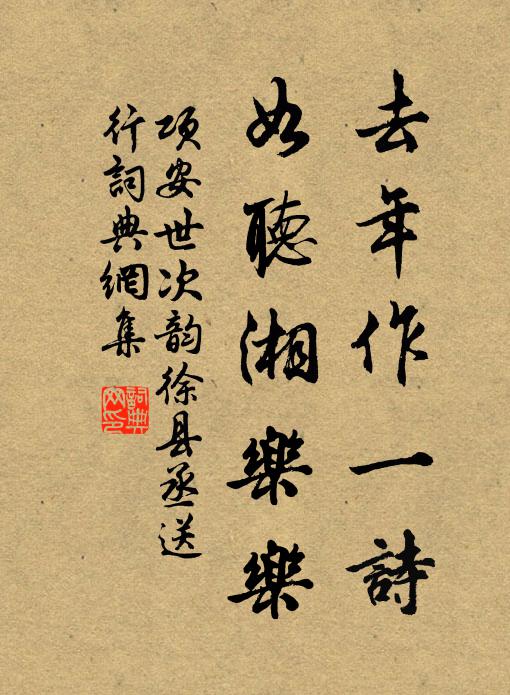 去年作一詩
如聽湘樂樂
項安世次韵徐县丞送
行詞典網集
詞典網印